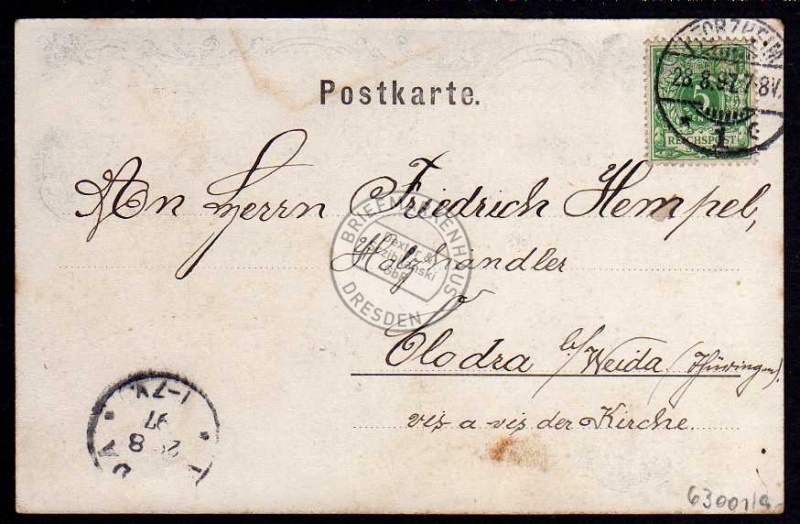 Postkarte.
PFORZHEIM
28.8.97.7-8V.
1 c
5
REICHSPOST
An Herrn Friedrich Hempel,
Holzhandler
Clodra b/Weida (Thüringen).
vis a vis der Kirche.
BRIEFMARKENHAUS
DRESDEN
1-7N.
97
8
63001/9